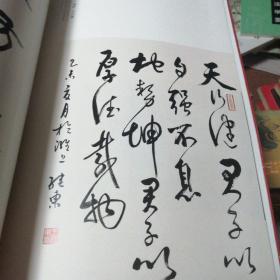 天行健君子以
自强不息
地势坤君子以
厚德载物
乙未夏月於